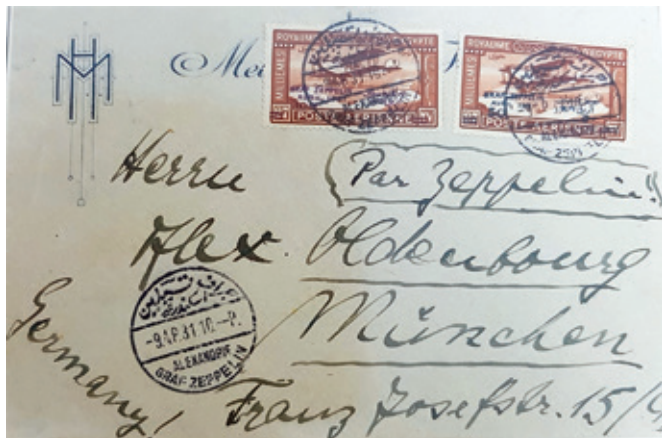 HM
Mei
ROYAUME D'EGYPTE
MILLIEMES
POSTE AERIENNE
ROYAUME D'EGYPTE
MILLIEMES
POSTE AERIENNE
Herrn
(Par Zeppelin!)
Alex. Oldenbourg
München
Germany!
Franz Josefstr. 15/
جراف تسبلين
اسكندرية
-9.AP.31.10.-P.
ALEXANDRIE
GRAF ZEPPELIN